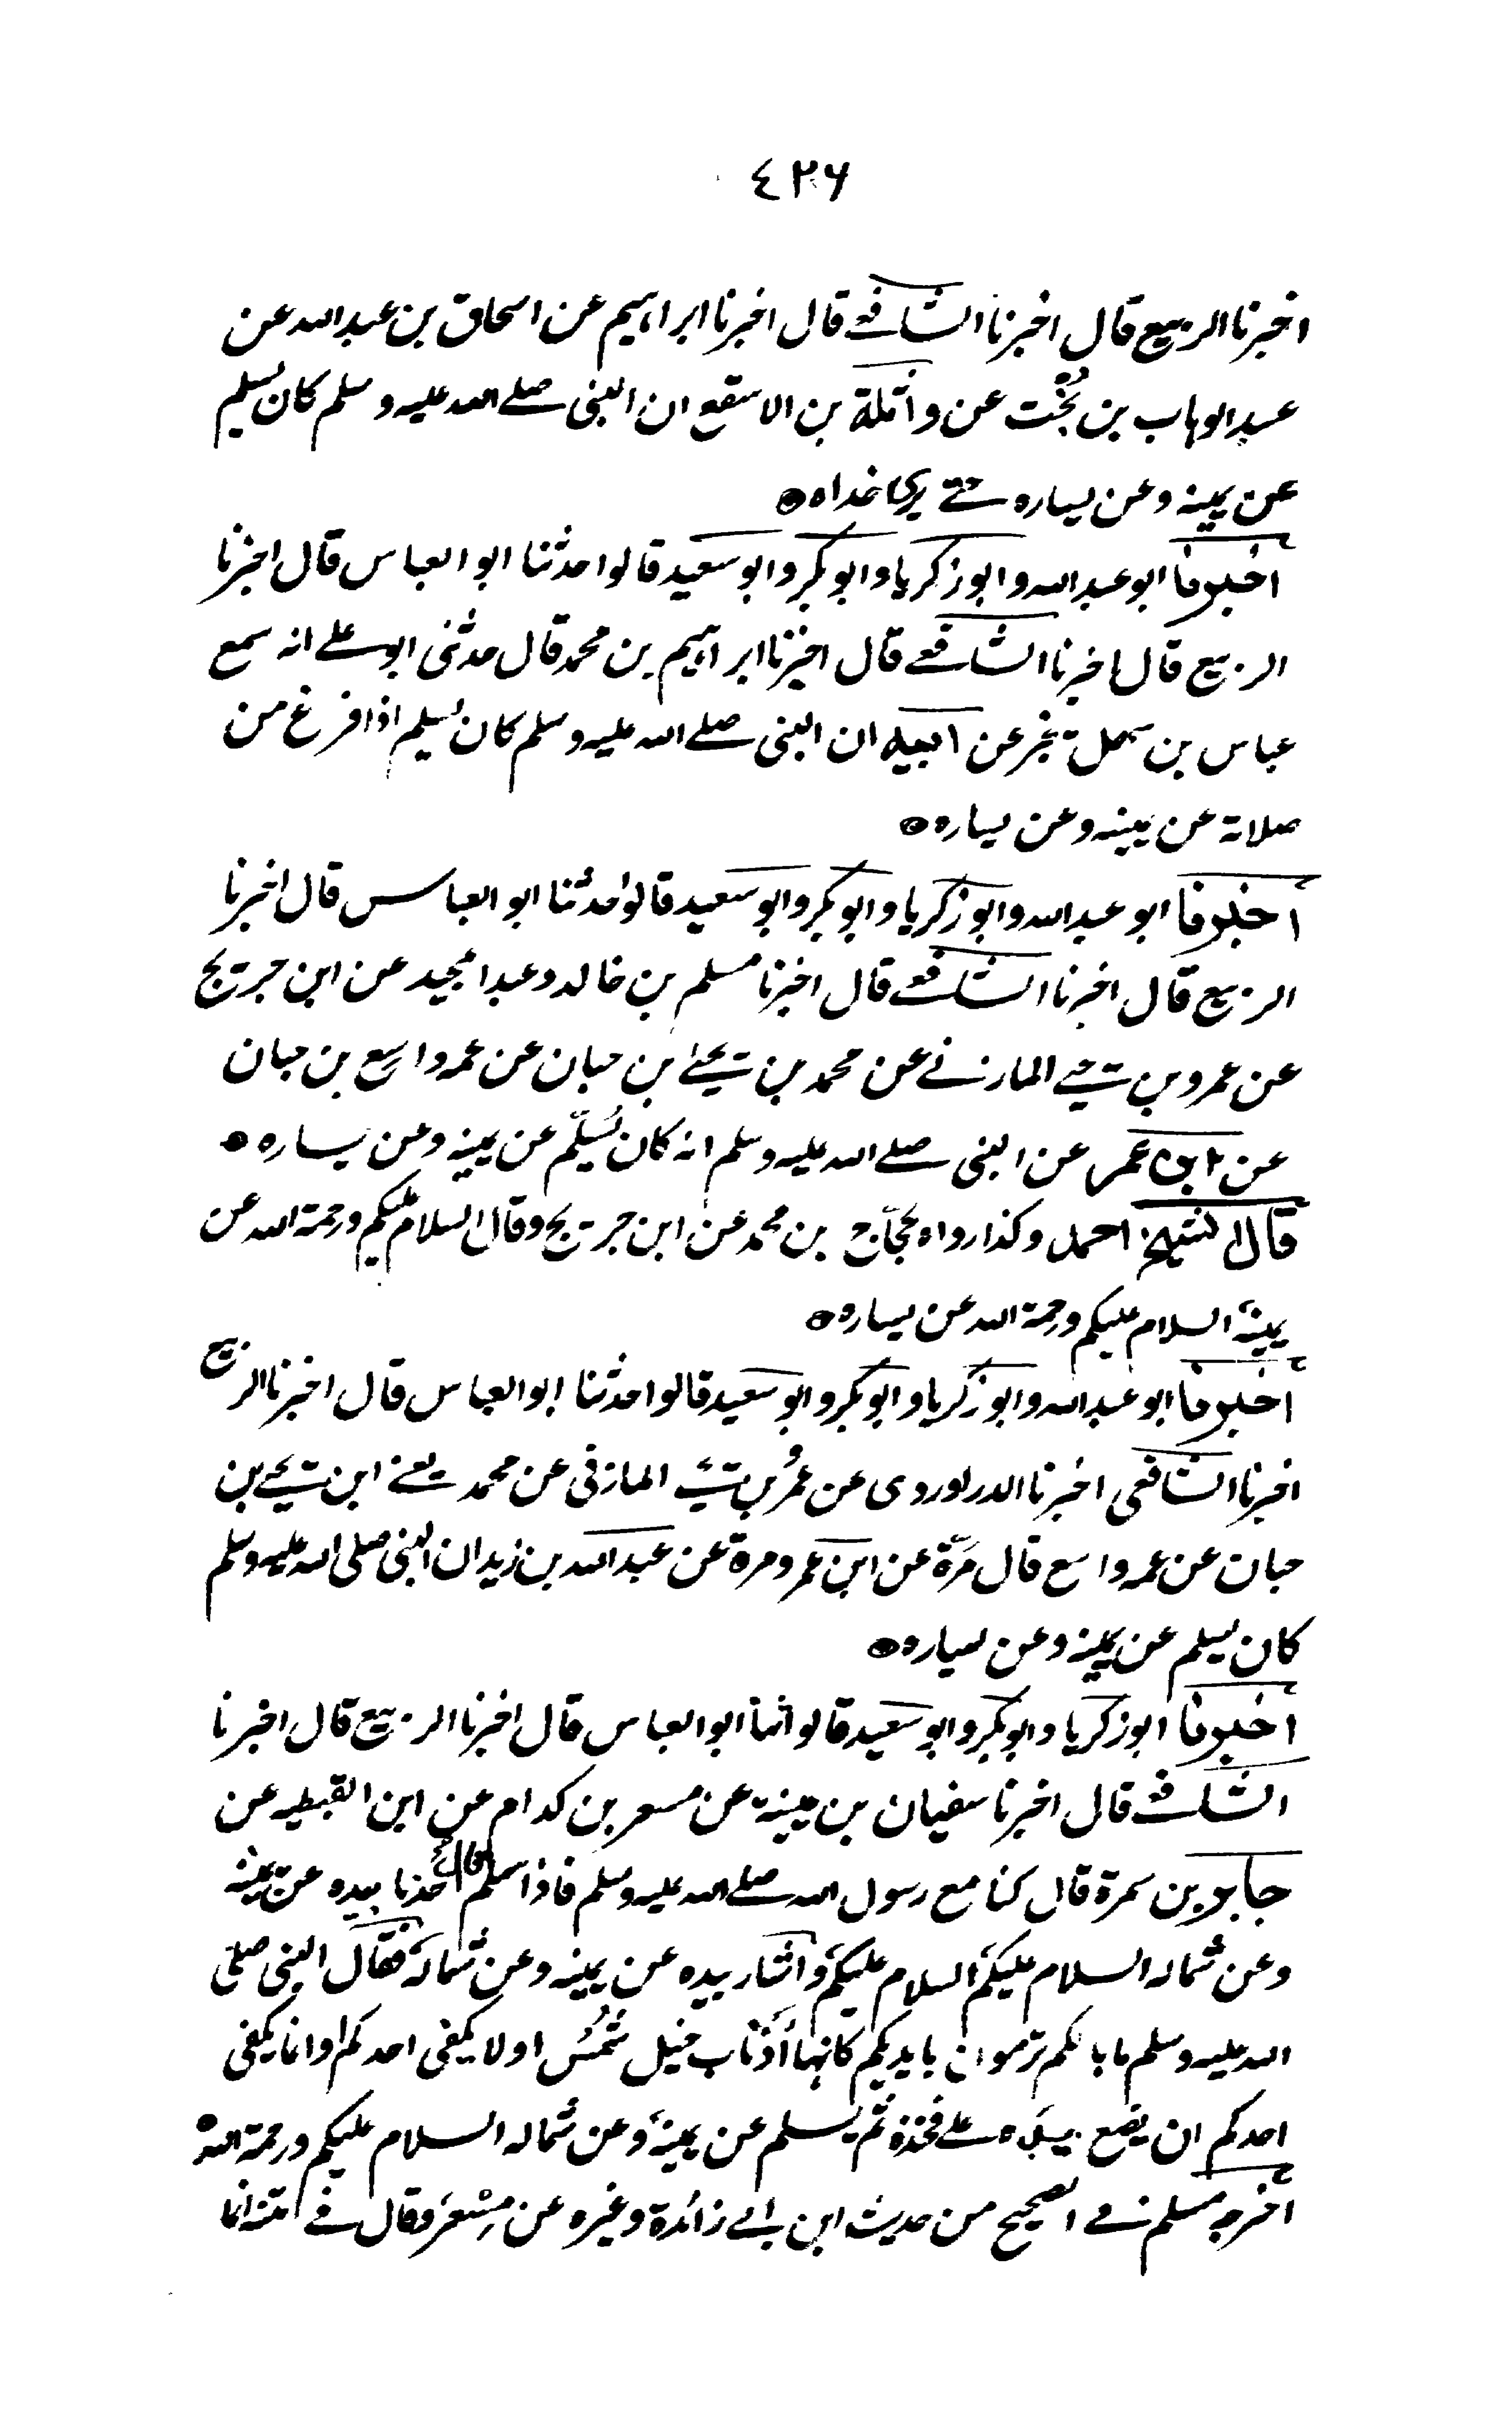 ٤٢٦
اخبرنا الربيع قال اخبرنا الشافعي قال اخبرنا ابراهيم عن اسحاق بن عبد الله عن
عبد الوهاب بن بُخْت عن واثلة بن الاسقع ان النبي صلى الله عليه وسلم كان يسلم
عن يمينه وعن يساره حتى يرى خداه
اخبرنا ابو عبد الله وابو زكريا وابو بكر وابو سعيد قالوا حدثنا ابو العباس قال اخبرنا
الربيع قال اخبرنا الشافعي قال اخبرنا ابراهيم بن محمد قال حدثني ابو علي انه سمع
عباس بن سهل يخبر عن ابيه ان النبي صلى الله عليه وسلم كان يسلم اذا فرغ من
صلاته عن يمينه وعن يساره
اخبرنا ابو عبد الله وابو زكريا وابو بكر وابو سعيد قالوا حدثنا ابو العباس قال اخبرنا
الربيع قال اخبرنا الشافعي قال اخبرنا مسلم بن خالد وعبد المجيد عن ابن جريج
عن عمرو بن يحيى المازني عن محمد بن يحيى بن حبان عن عمه واسع بن حبان
عن ابن عمر عن النبي صلى الله عليه وسلم انه كان يُسَلِّم عن يمينه وعن يساره
قال الشيخ احمد وكذا رواه حجّاج بن محمد عن ابن جريج وقال السلام عليكم ورحمة الله عن
يمينه السلام عليكم ورحمة الله عن يساره
اخبرنا ابو عبد الله وابو زكريا وابو بكر وابو سعيد قالوا حدثنا ابو العباس قال اخبرنا الربيع
اخبرنا الشافعي اخبرنا الدراوردي عن عمرو بن يحيى المازني عن محمد يعني ابن يحيى بن
حبان عن عمه واسع قال مرّة عن ابن عمر ومرة عن عبد الله بن زيد ان النبي صلى الله عليه وسلم
كان يسلم عن يمينه وعن يساره
اخبرنا ابو زكريا وابو بكر وابو سعيد قالوا ابو العباس قال اخبرنا الربيع قال اخبرنا
الشافعي قال اخبرنا سفيان بن عيينة عن مسعر بن كدام عن ابن القبطيه عن
جابر بن سمرة قال كنا مع رسول الله صلى الله عليه وسلم فاذا سلم قال احدنا بيده عن يمينه
وعن شماله السلام عليكم السلام عليكم واشار بيده عن يمينه وعن شماله فقال النبي صلى
الله عليه وسلم ما بالكم ترمون بايديكم كانها أذناب خيل شُمُس اولا يكفي احدكم او انما يكفي
احدكم ان يضع يده على فخذه ثم يسلم عن يمينه وعن شماله السلام عليكم ورحمة الله
اخرجه مسلم في الصحيح من حديث ابن ابي زائدة وغيره عن مِسْعَر وقال في متنه انما